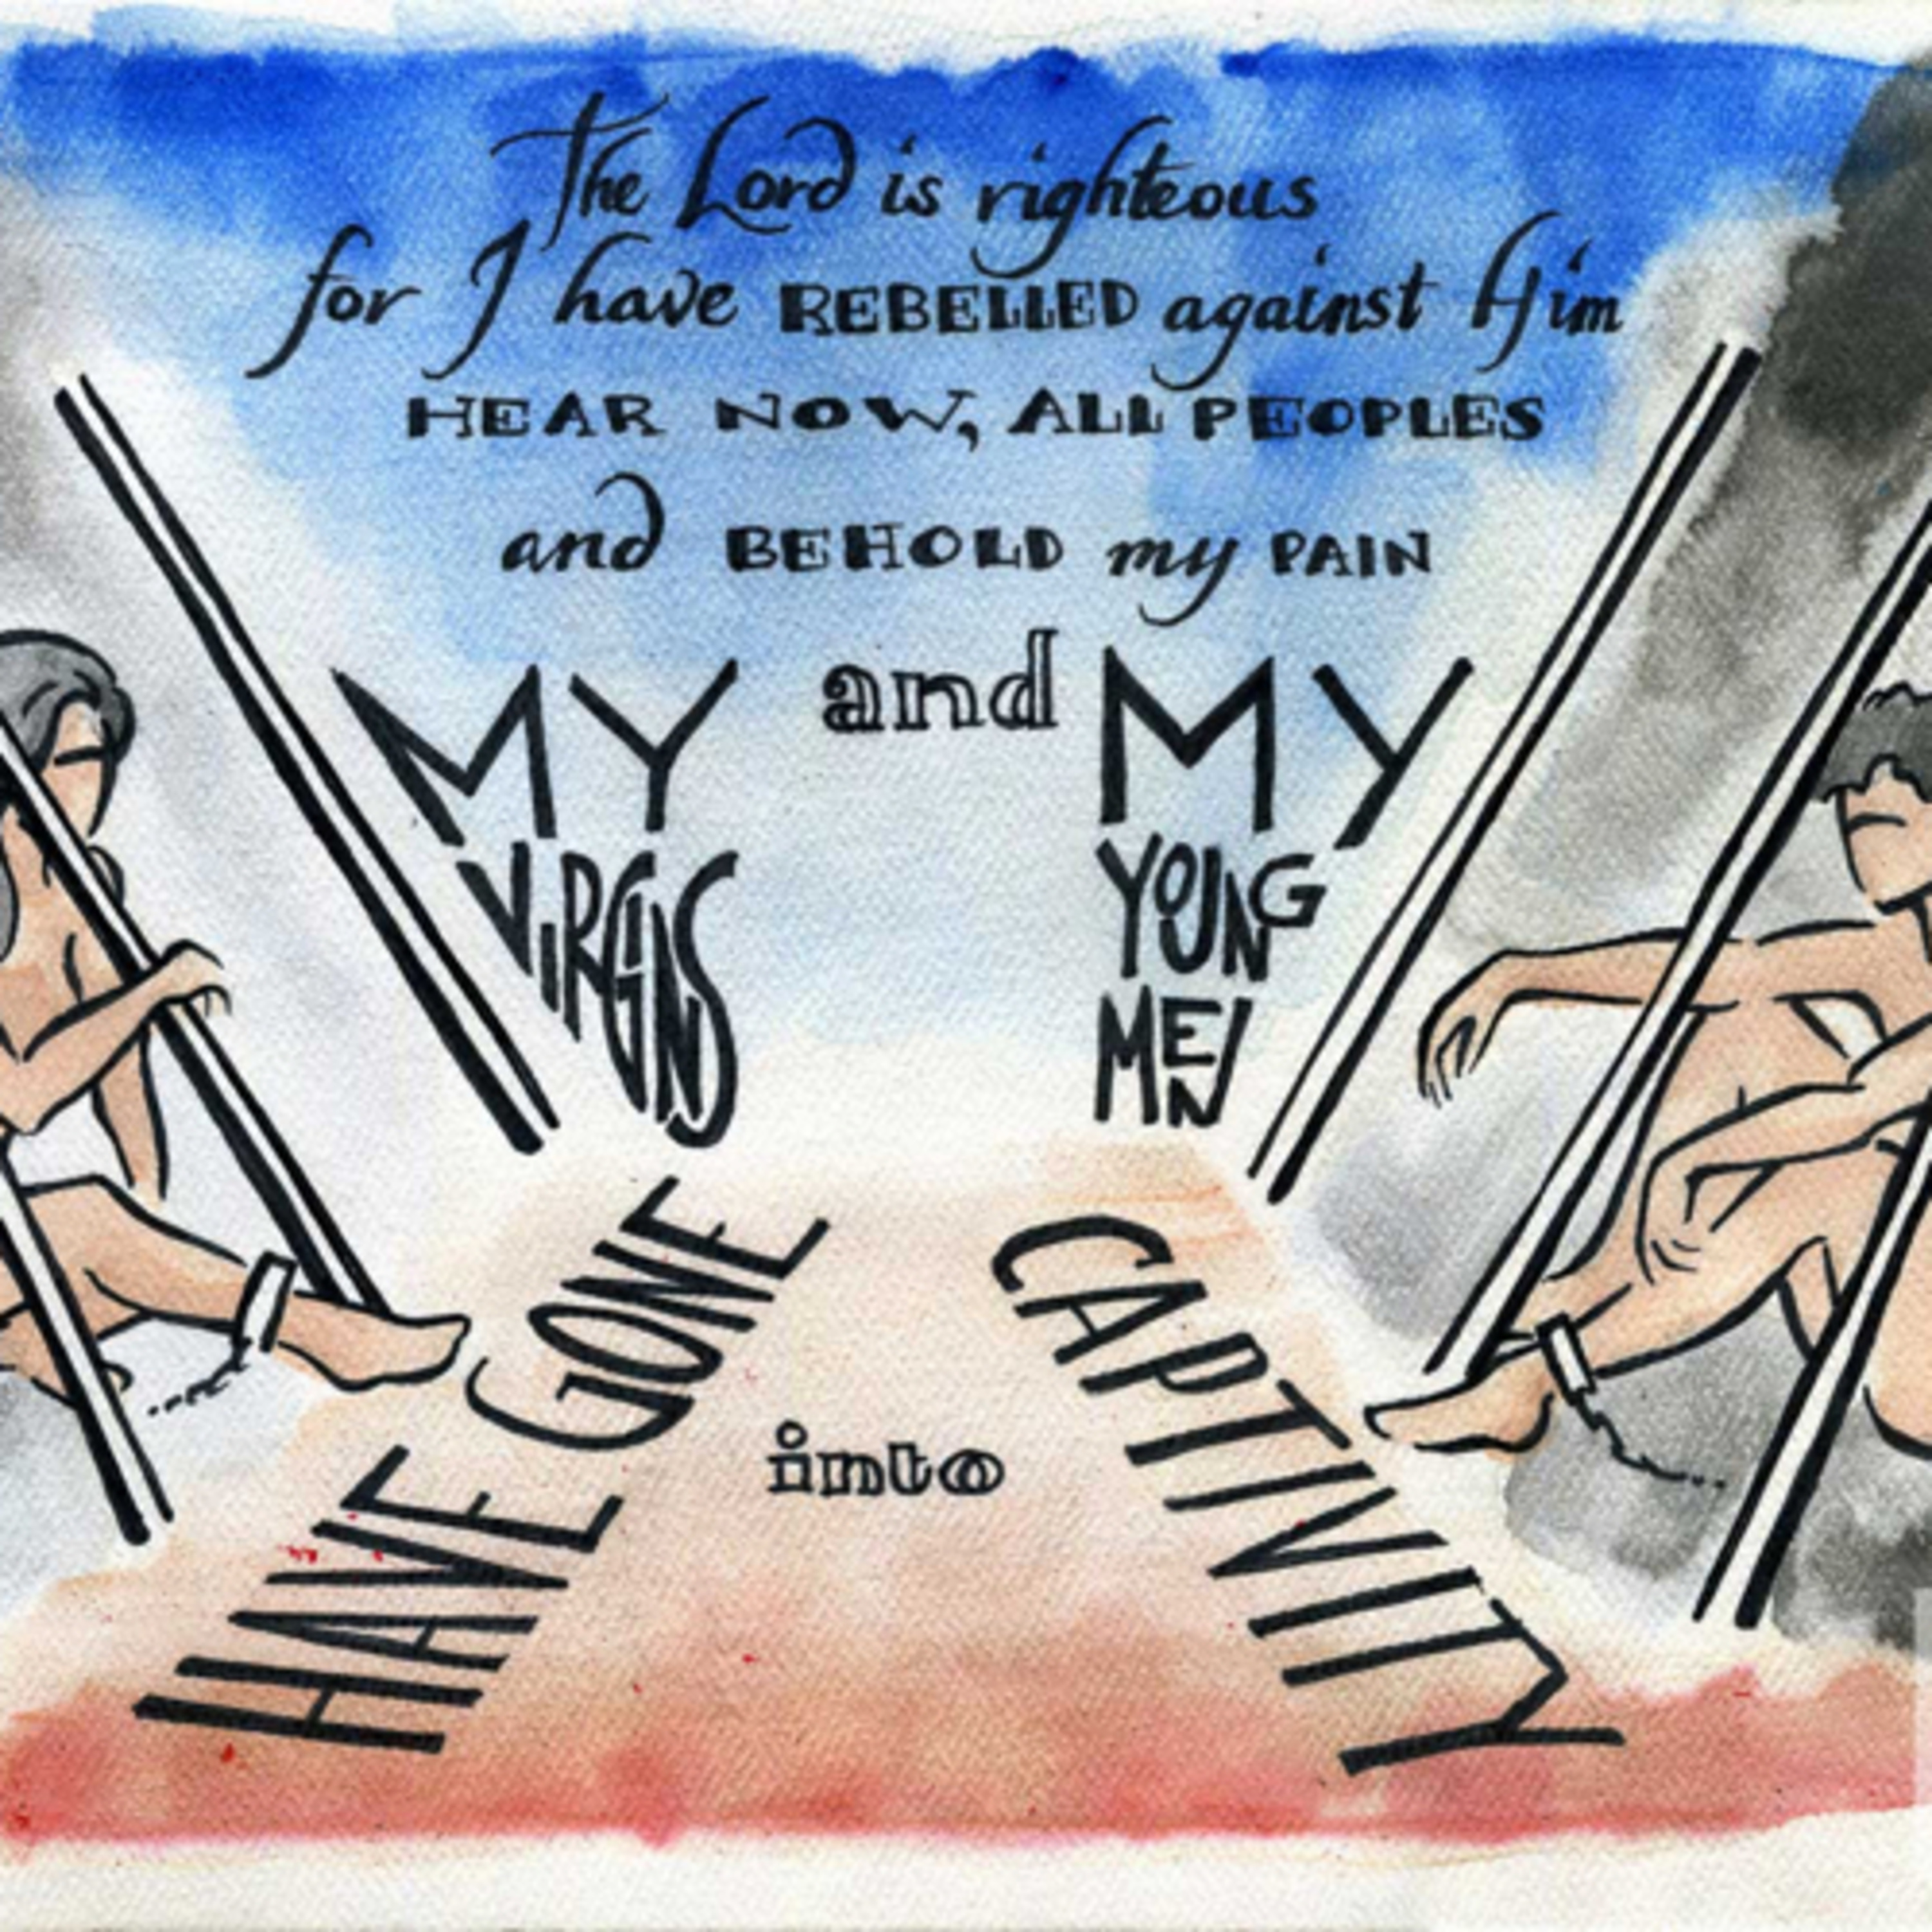 The Lord is righteous
for I have REBELLED against Him
HEAR NOW, ALL PEOPLES
and BEHOLD my PAIN
MY and MY
VIRGINS YOUNG
MEN
HAVE GONE into CAPTIVITY